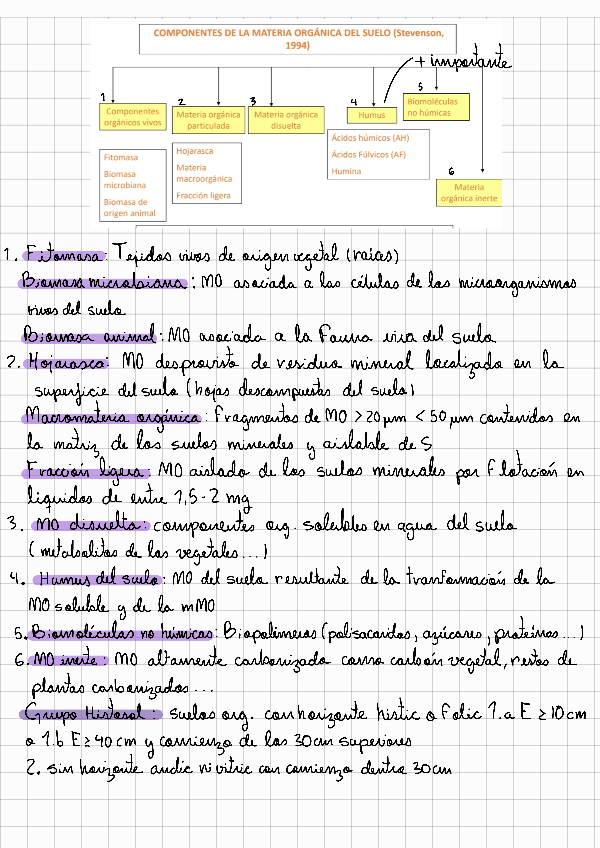 COMPONENTES DE LA MATERIA ORGÁNICA DEL SUELO (Stevenson,
1994)
+ importante
1
Componentes
orgánicos vivos
2
Materia orgánica
particulada
3
Materia orgánica
disuelta
4
Humus
5
Biomoléculas
no húmicas
Fitomasa
Biomasa
microbiana
Biomasa de
origen animal
Hojarasca
Materia
macroorgánica
Fracción ligera
Ácidos húmicos (AH)
Ácidos Fúlvicos (AF)
Humina
6
Materia
orgánica inerte
1. Fitomasa: Tejidos vivos de origen vegetal (raices)
Biomasa microbiana: MO asociada a las células de los microorganismos
vivos del suelo
Biomasa animal: MO asociada a la Fauna viva del suelo
2. Hojarasca: MO desprovista de residuo mineral localizado en la
superficie del suelo (hojas descompuestas del suelo)
Macromateria orgánica: Fragmentos de MO >20 µm < 50 µm contenidos en
la matriz de los suelos minerales y aislable de S
Fracción ligera: MO aislado de los suelos minerales por flotación en
líquidos de entre 1,5-2 mg
3. MO disuelta: componentes org. solubles en agua del suelo
(metabolitos de los vegetales...)
4. Humus del suelo: MO del suelo resultante de la tranformación de la
MO soluble y de la mMO
5. Biomoléculas no húmicas: Biopolímeros (polisacaridos, azúcares, proteínas...)
6. MO inerte: MO altamente carbonizada como carbón vegetal, restos de
plantas carbonizados...
Grupo Histosol: suelos org. con horizonte histic o folic 1.a E ≥ 10 cm
o 1.b E ≥ 40 cm y comienzo de los 30 cm superiores
2. sin horizonte andic ni vitric con comienzo dentro 30cm